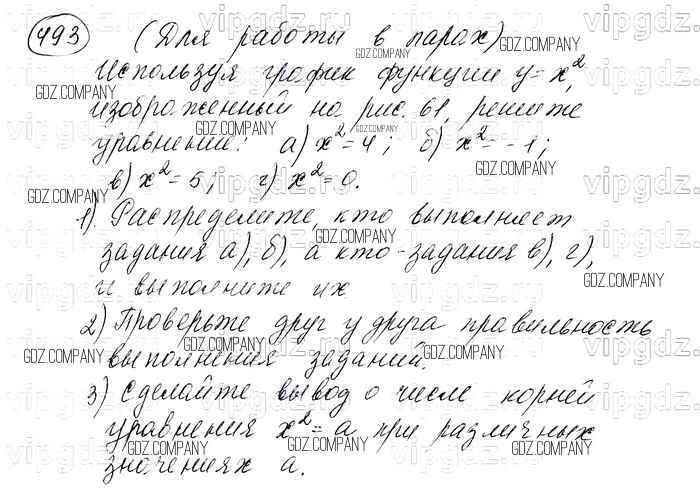 493 (Для работы в парах)
Используя график функции y=x²,
изображенный на рис. 61, решите
уравнение: а) x²=4; б) x²=-1;
в) x²=5; г) x²=0.
1). Распределите, кто выполняет
задания а), б), а кто-задания в), г),
и выполните их
2) Проверьте друг у друга правильность
выполнения заданий.
3) Сделайте вывод о числе корней
уравнения x²=a при различных
значениях a.